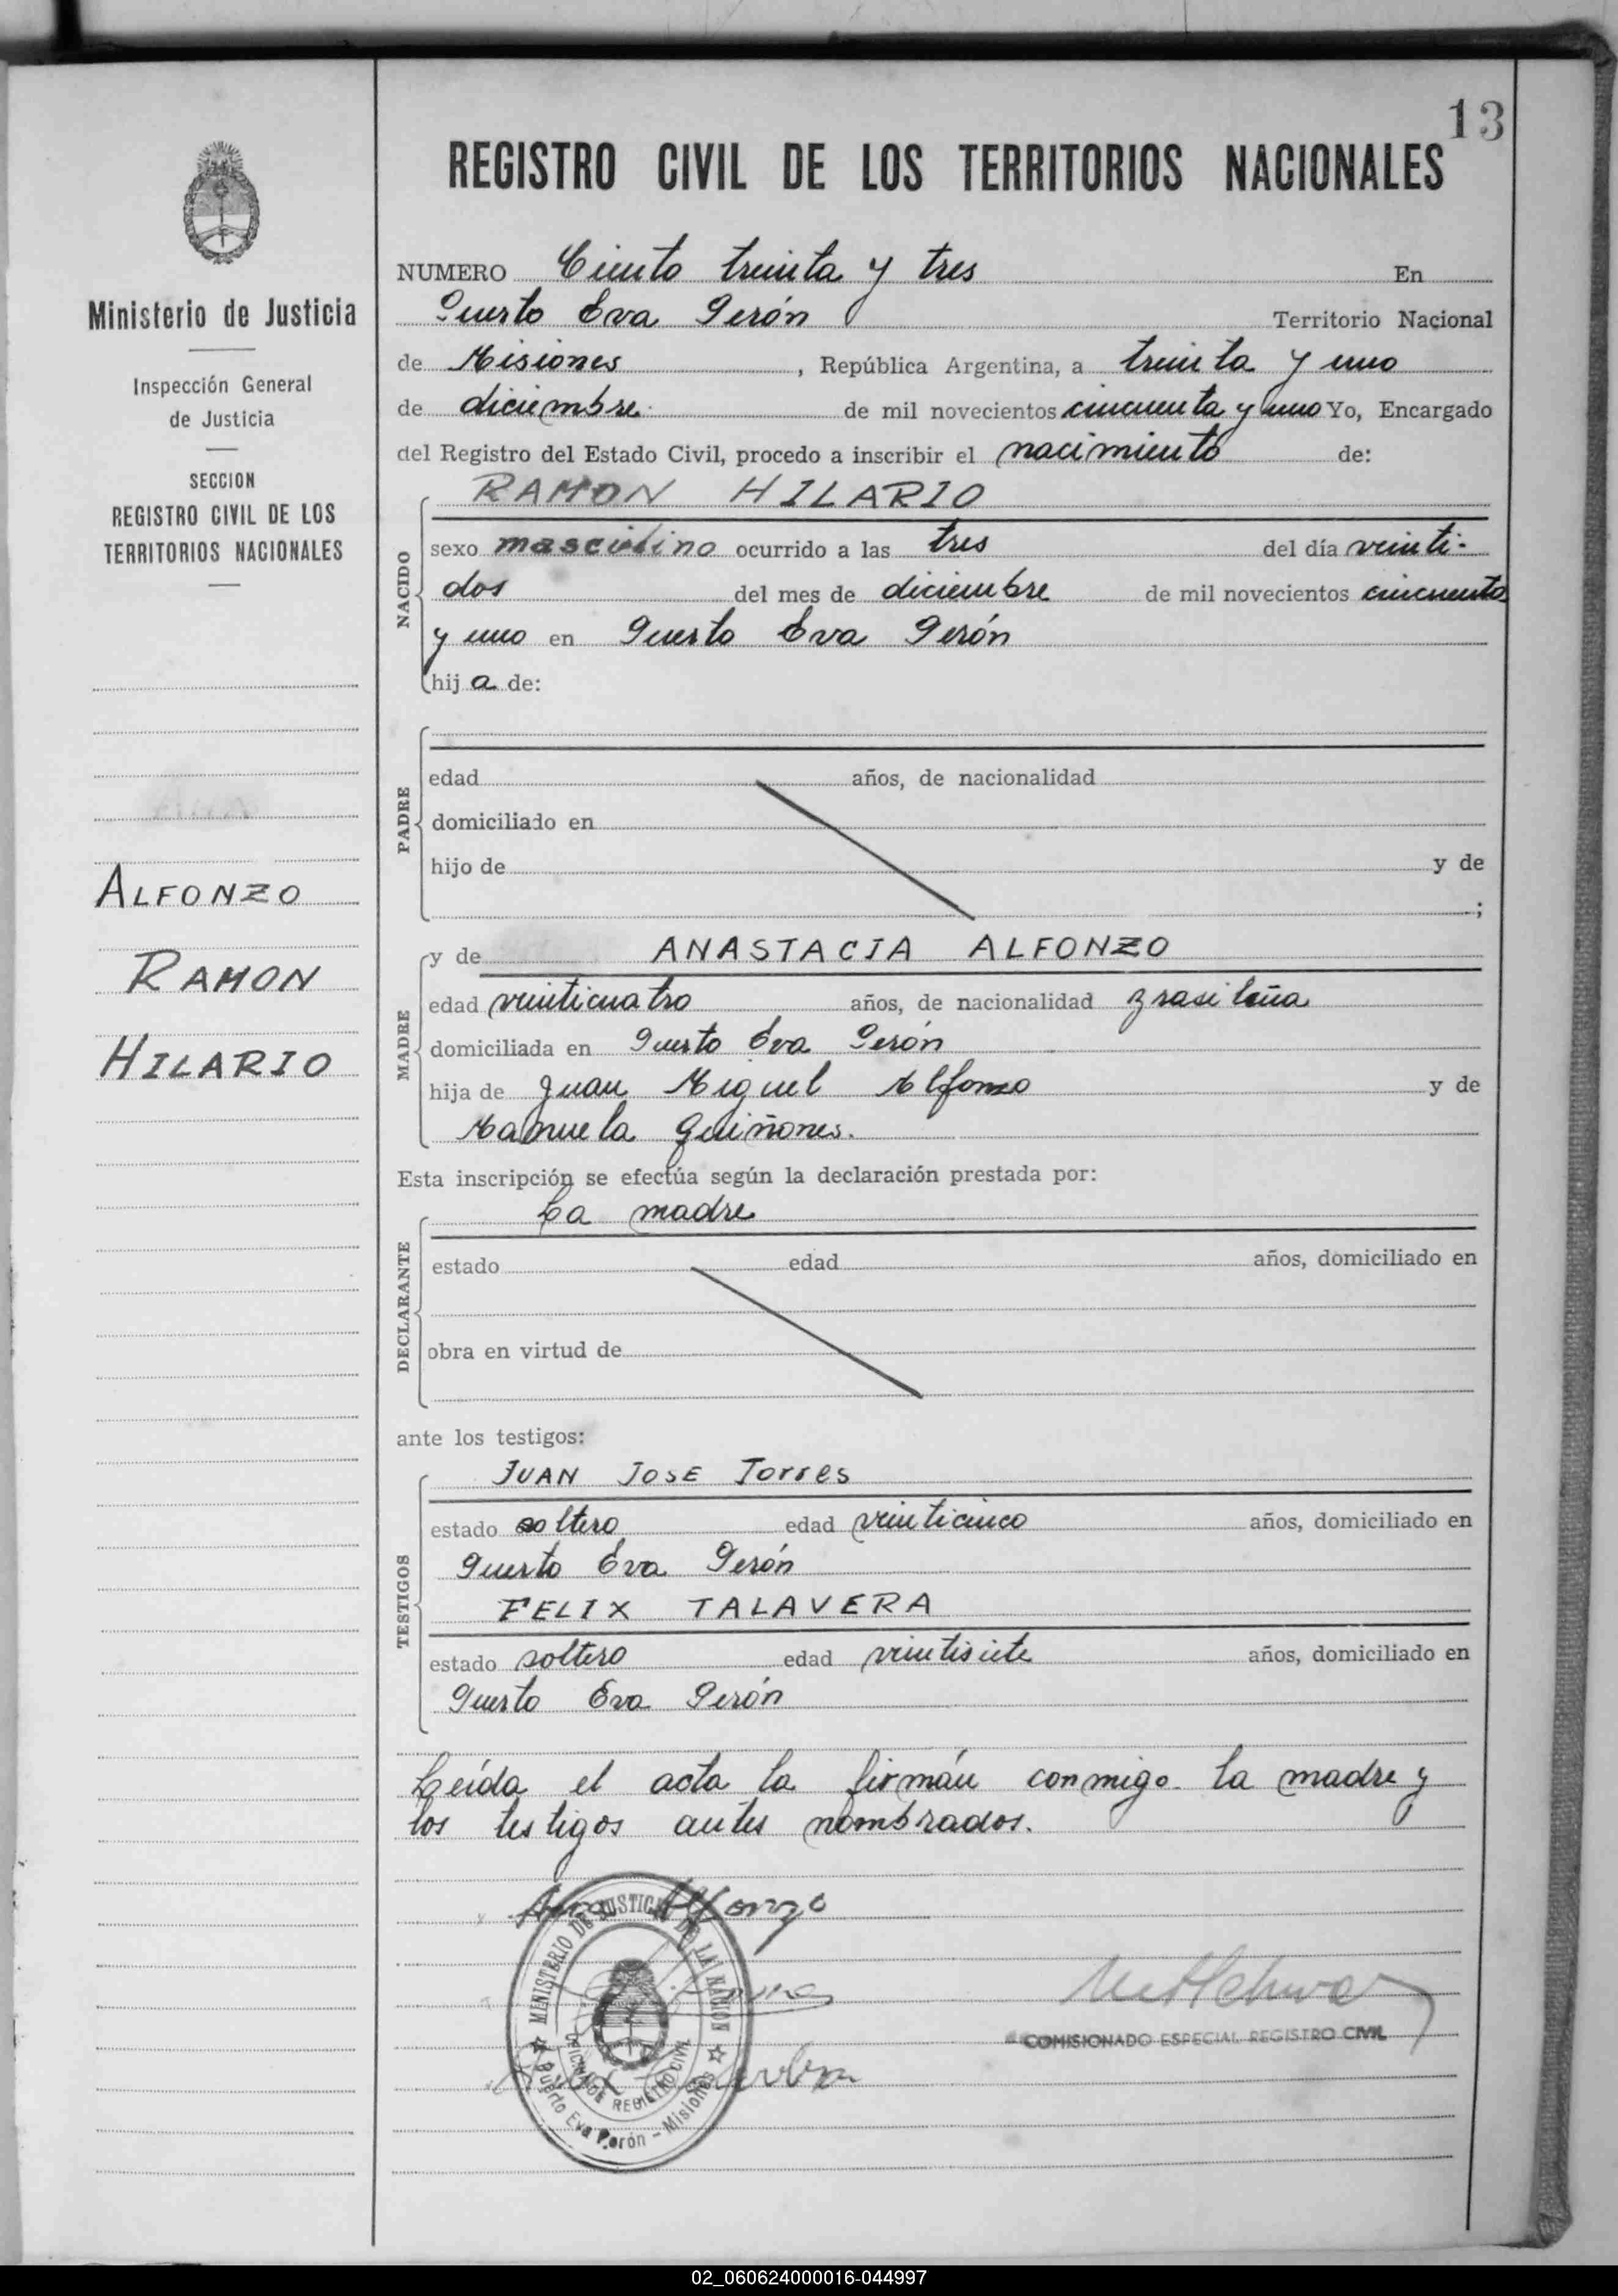 13
REGISTRO CIVIL DE LOS TERRITORIOS NACIONALES
Ministerio de Justicia
Inspección General
de Justicia
SECCION
REGISTRO CIVIL DE LOS
TERRITORIOS NACIONALES
ALFONZO
RAMON
HILARIO
NUMERO Ciento treinta y tres En
Puerto Eva Perón Territorio Nacional
de Misiones, República Argentina, a treinta y uno
de diciembre de mil novecientos cincuenta y uno Yo, Encargado
del Registro del Estado Civil, procedo a inscribir el nacimiento de:
NACIDO
RAMON HILARIO
sexo masculino ocurrido a las tres del día veinti-
dos del mes de diciembre de mil novecientos cincuenta
y uno en Puerto Eva Perón
hij a de:
PADRE
edad años, de nacionalidad
domiciliado en
hijo de y de
;
MADRE
y de ANASTACIA ALFONZO
edad veinticuatro años, de nacionalidad brasileña
domiciliada en Puerto Eva Perón
hija de Juan Miguel Alfonzo y de
Manuela Quiñones.
Esta inscripción se efectúa según la declaración prestada por:
DECLARANTE
La madre
estado edad años, domiciliado en
obra en virtud de
ante los testigos:
TESTIGOS
JUAN JOSE Torres
estado soltero edad veinticinco años, domiciliado en
Puerto Eva Perón
FELIX TALAVERA
estado soltero edad veintisiete años, domiciliado en
Puerto Eva Perón
Leída el acta la firmán conmigo la madre y
los testigos antes nombrados.
Alfonzo
MINISTERIO DE JUSTICIA DE LA NACION
OFICINA DE REGISTRO CIVIL
Puerto Eva Perón - Misiones
COMISIONADO ESPECIAL REGISTRO CIVIL
02_060624000016-044997